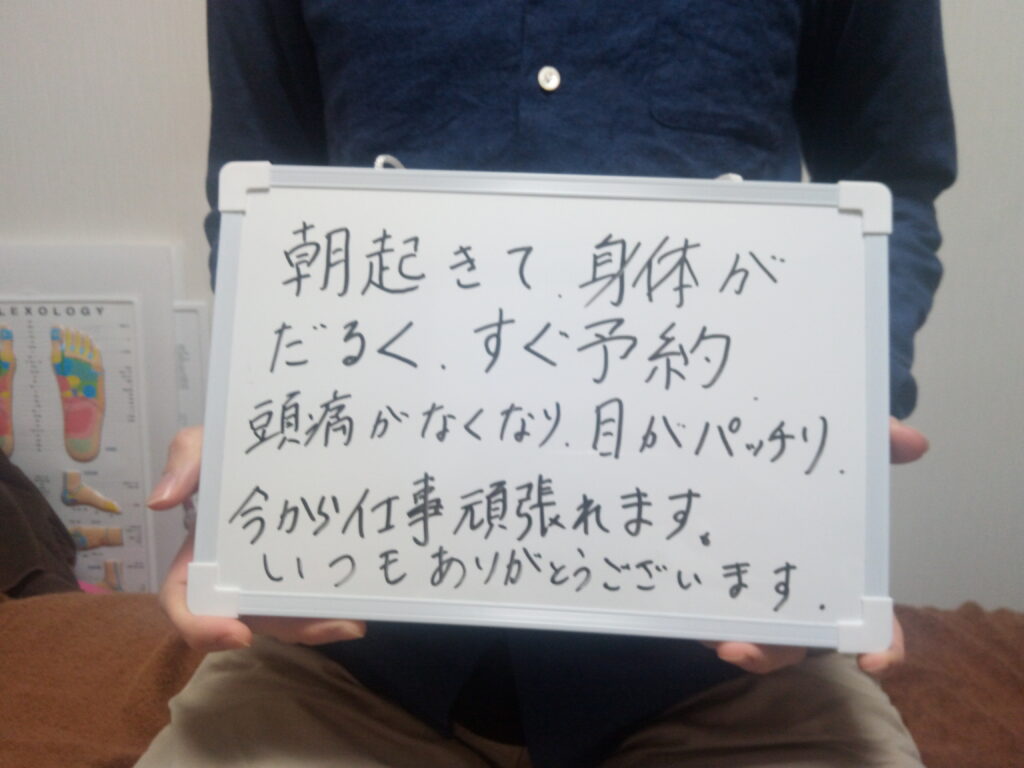 LEXOLOGY
朝起きて、身体が
だるく、すぐ予約
頭痛がなくなり、目がパッチリ.
今から仕事頑張れます。
いつもありがとうございます.